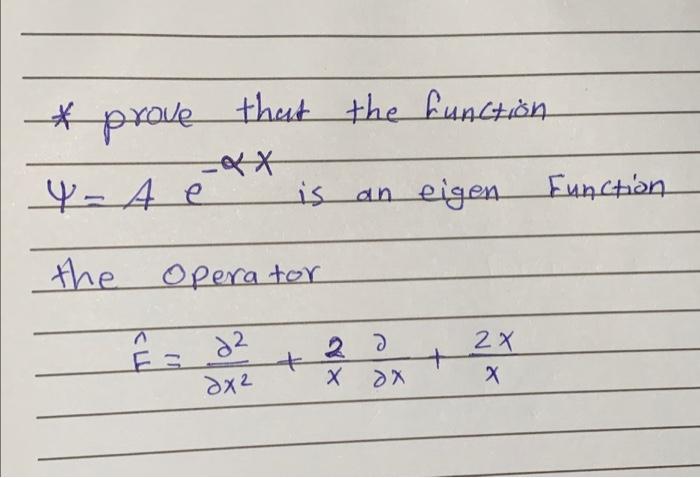 * prove that the function
Ψ = A e^{-αx} is an eigen Function
the operator
F̂ = ∂²/∂x² + 2/x ∂/∂x + 2x/x